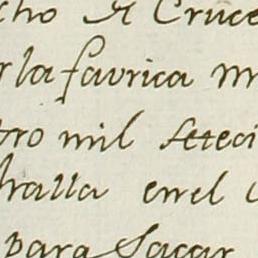 cho R Cruce
la favrica m
tro mil seteci
halla enel
para Sacar